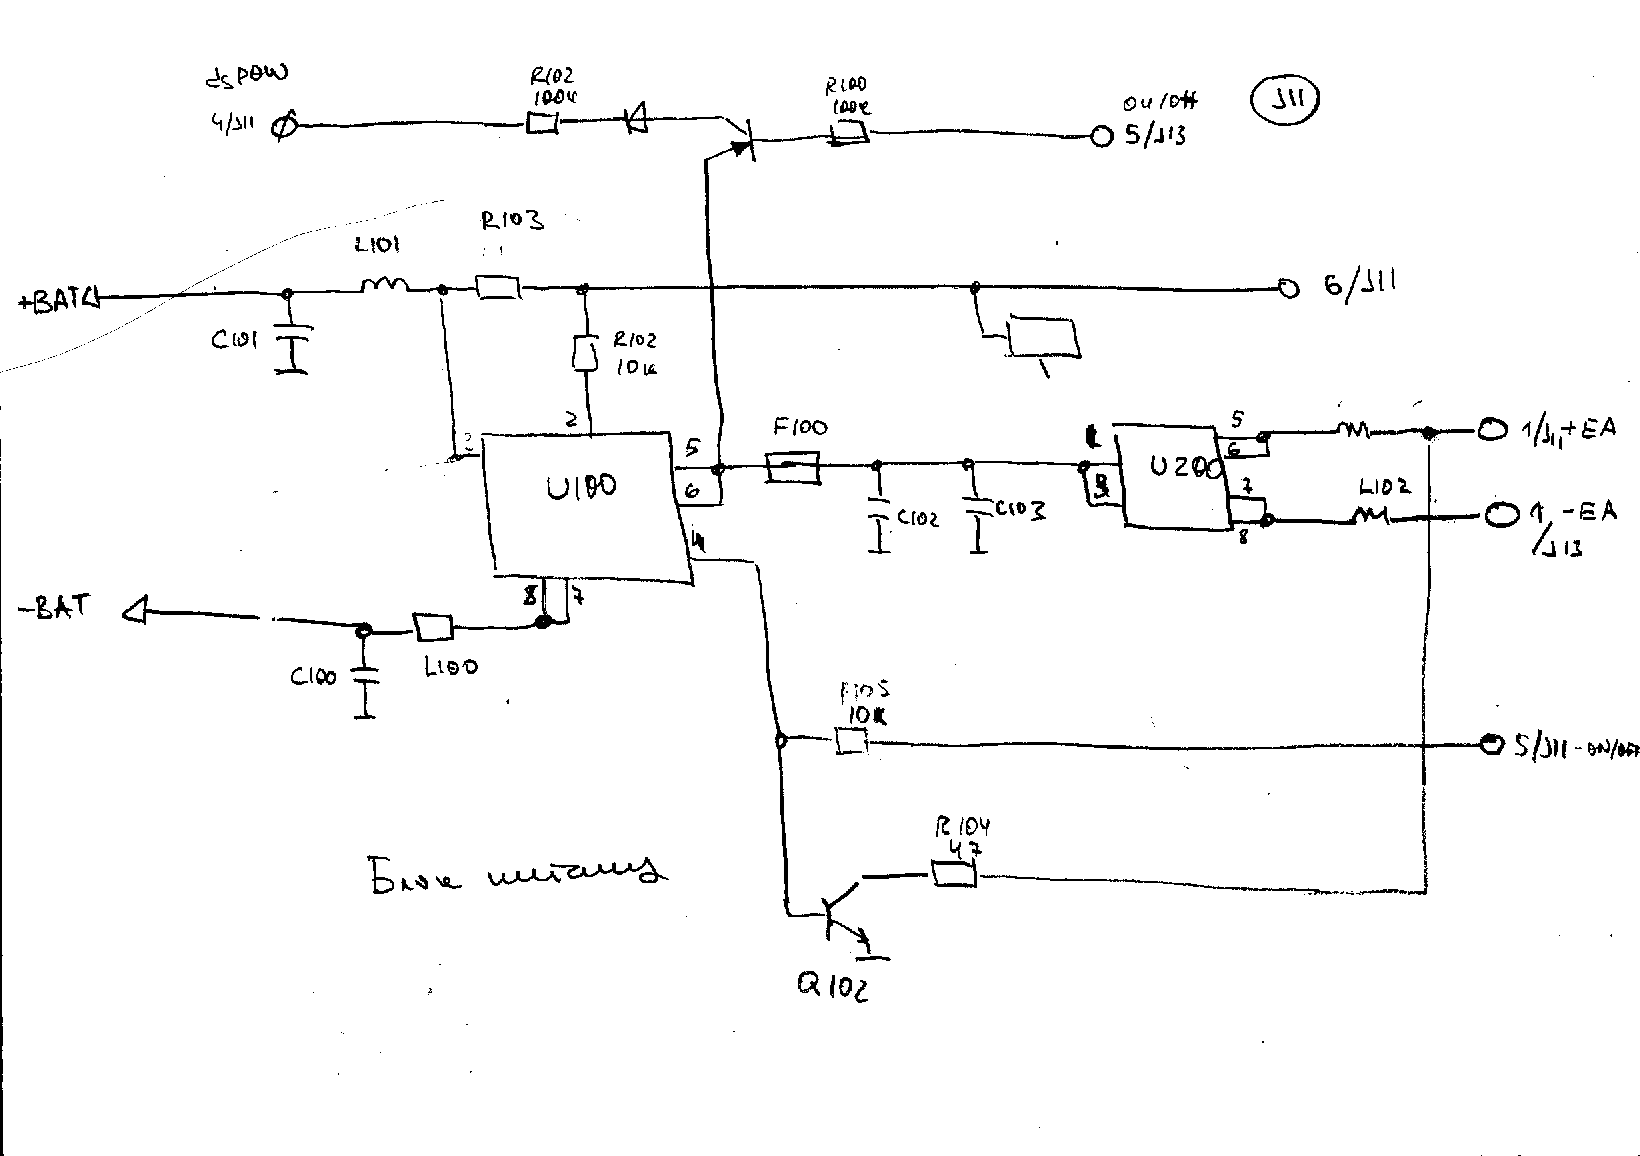 dspow
4/J11
R102
100k
R100
100k
ON/Off
5/J13
J11
+BAT
L101
R103
C101
R102
10k
6/J11
2
2
U100
5
6
4
8
7
F100
C102
C103
1
3
U200
5
6
7
8
L102
1/J11+EA
1 -EA
/J13
-BAT
C100
L100
R105
10k
5/J11-ON/OFF
R104
47
Q102
Блок питания